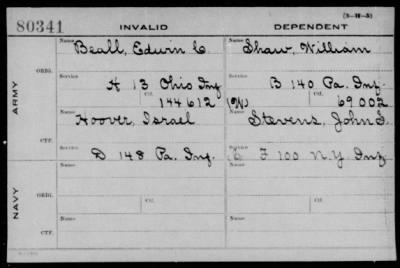 (3-H-5)
80341 INVALID DEPENDENT
Name Beall, Edwin C Name Shaw, William
ARMY
ORIG.
Service A 13 Ohio Inf Service B 140 Pa. Inf.
Ctf. 144612 (W) Ctf. 69002
Name Hoover, Israel Name Stevens, John S.
CTF.
Service D 148 Pa. Inf. F 100 N.Y. Inf
NAVY
Name Ctf. Name Ctf.
ORIG.
Service Service
Name Name
CTF.